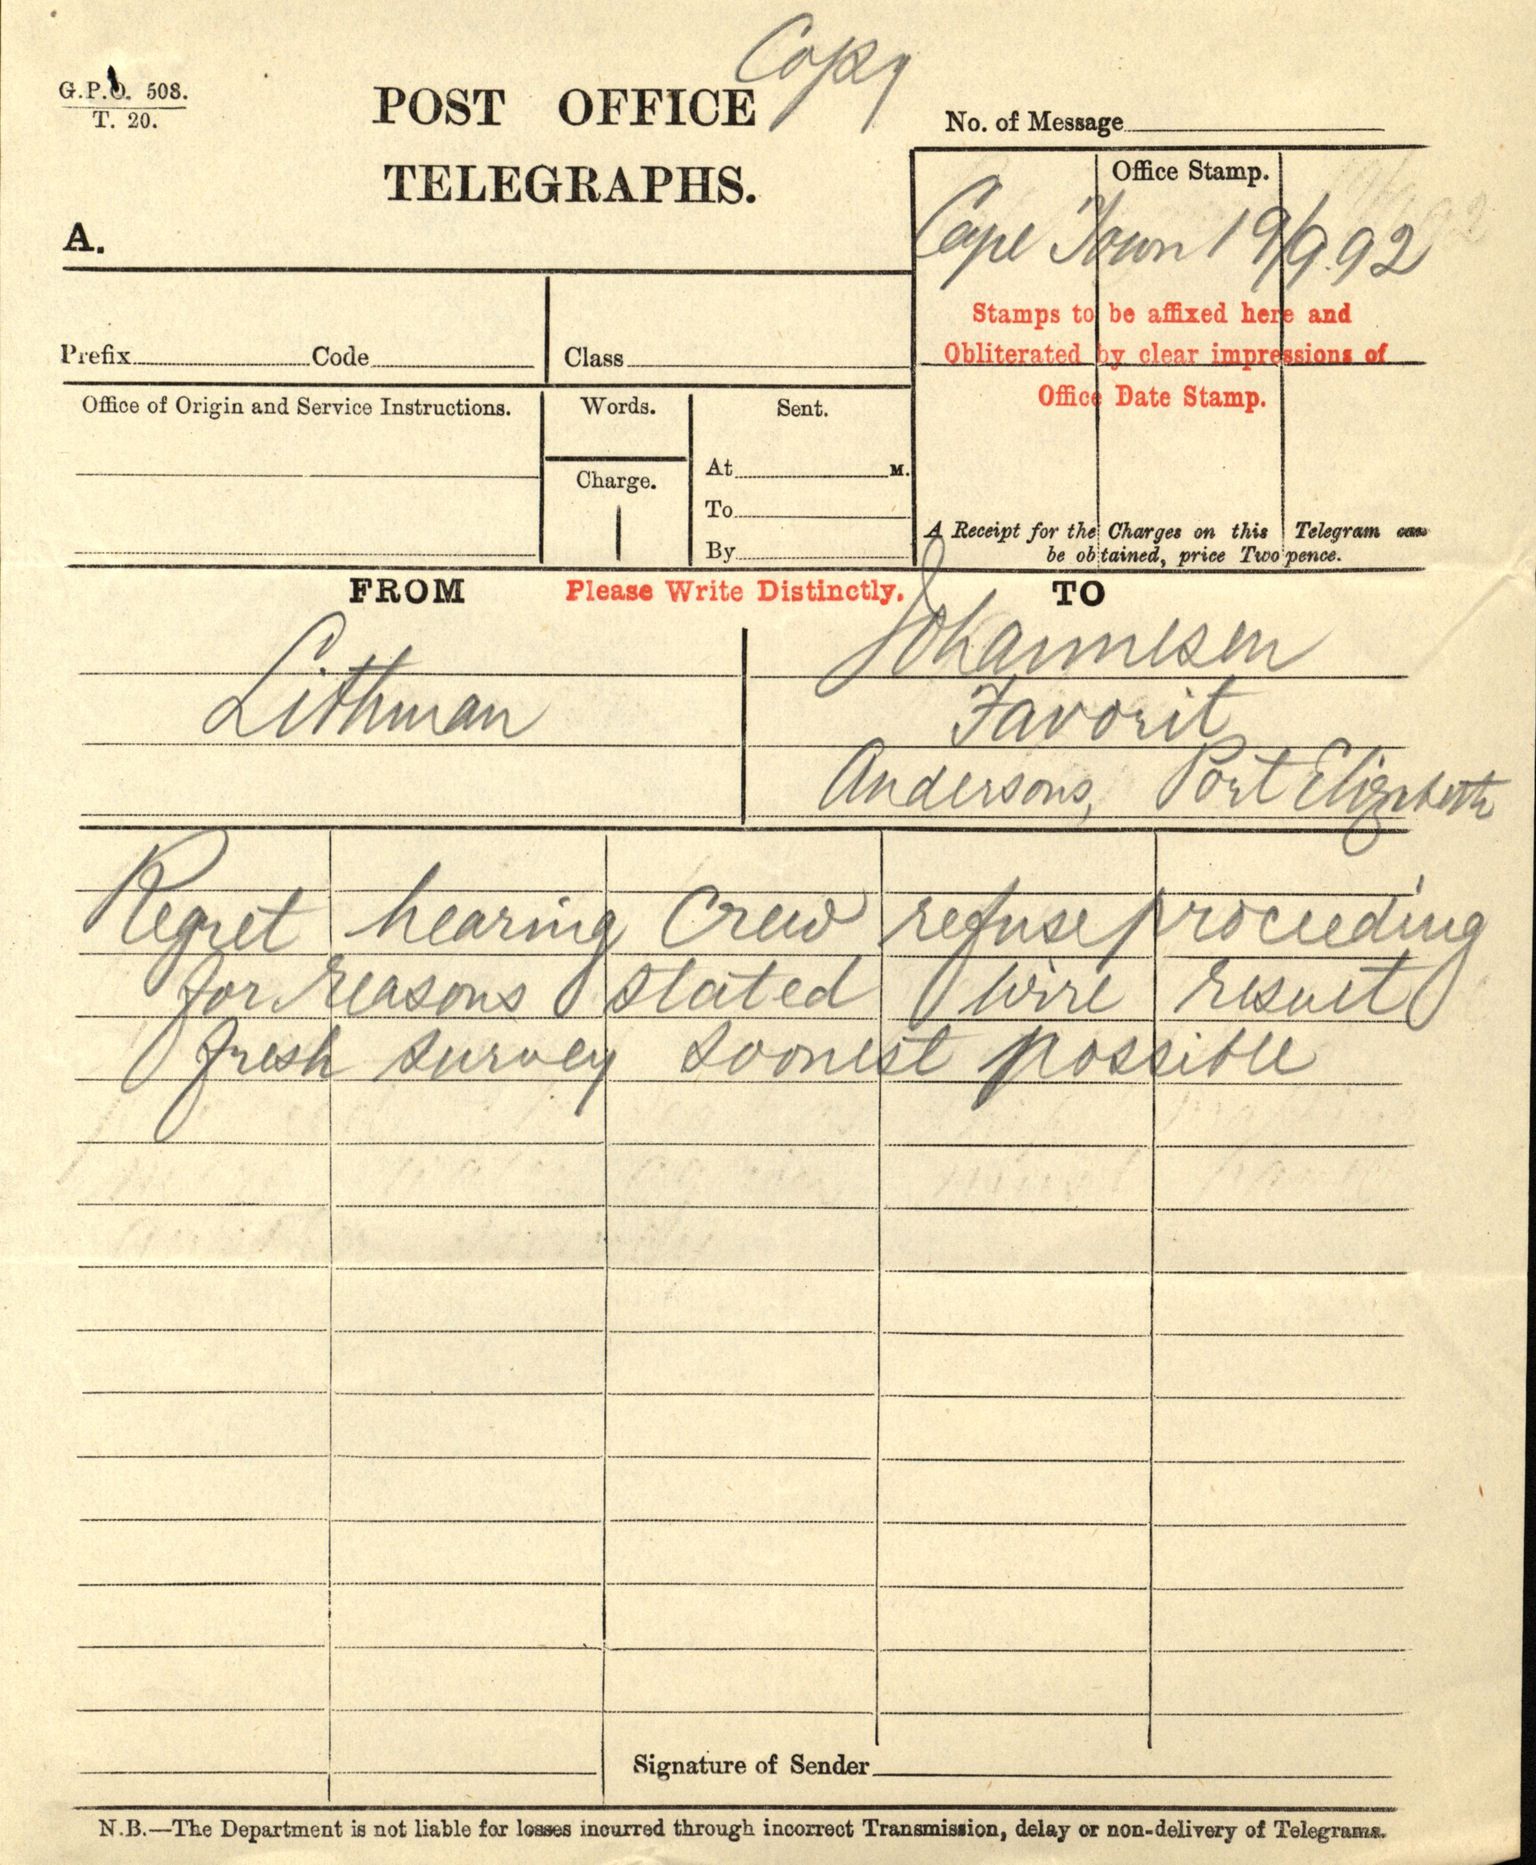 Copy
G.P.O. 508.
T. 20.
POST OFFICE
TELEGRAPHS.
No. of Message
A.
Office Stamp.
Cape Town 19/9.92
Stamps to be affixed here and
Obliterated by clear impressions of
Office Date Stamp.
Prefix Code Class
Office of Origin and Service Instructions.
Words.
Charge.
Sent.
At M.
To
By
A Receipt for the Charges on this Telegram can
be obtained, price Twopence.
FROM Please Write Distinctly. TO
Lithman
Johannesen
Favorit
Andersons, Port Elizabeth
Regret hearing Crew refuse proceeding
for reasons stated wire result
fresh survey soonest possible
Signature of Sender
N.B.—The Department is not liable for losses incurred through incorrect Transmission, delay or non-delivery of Telegrams.